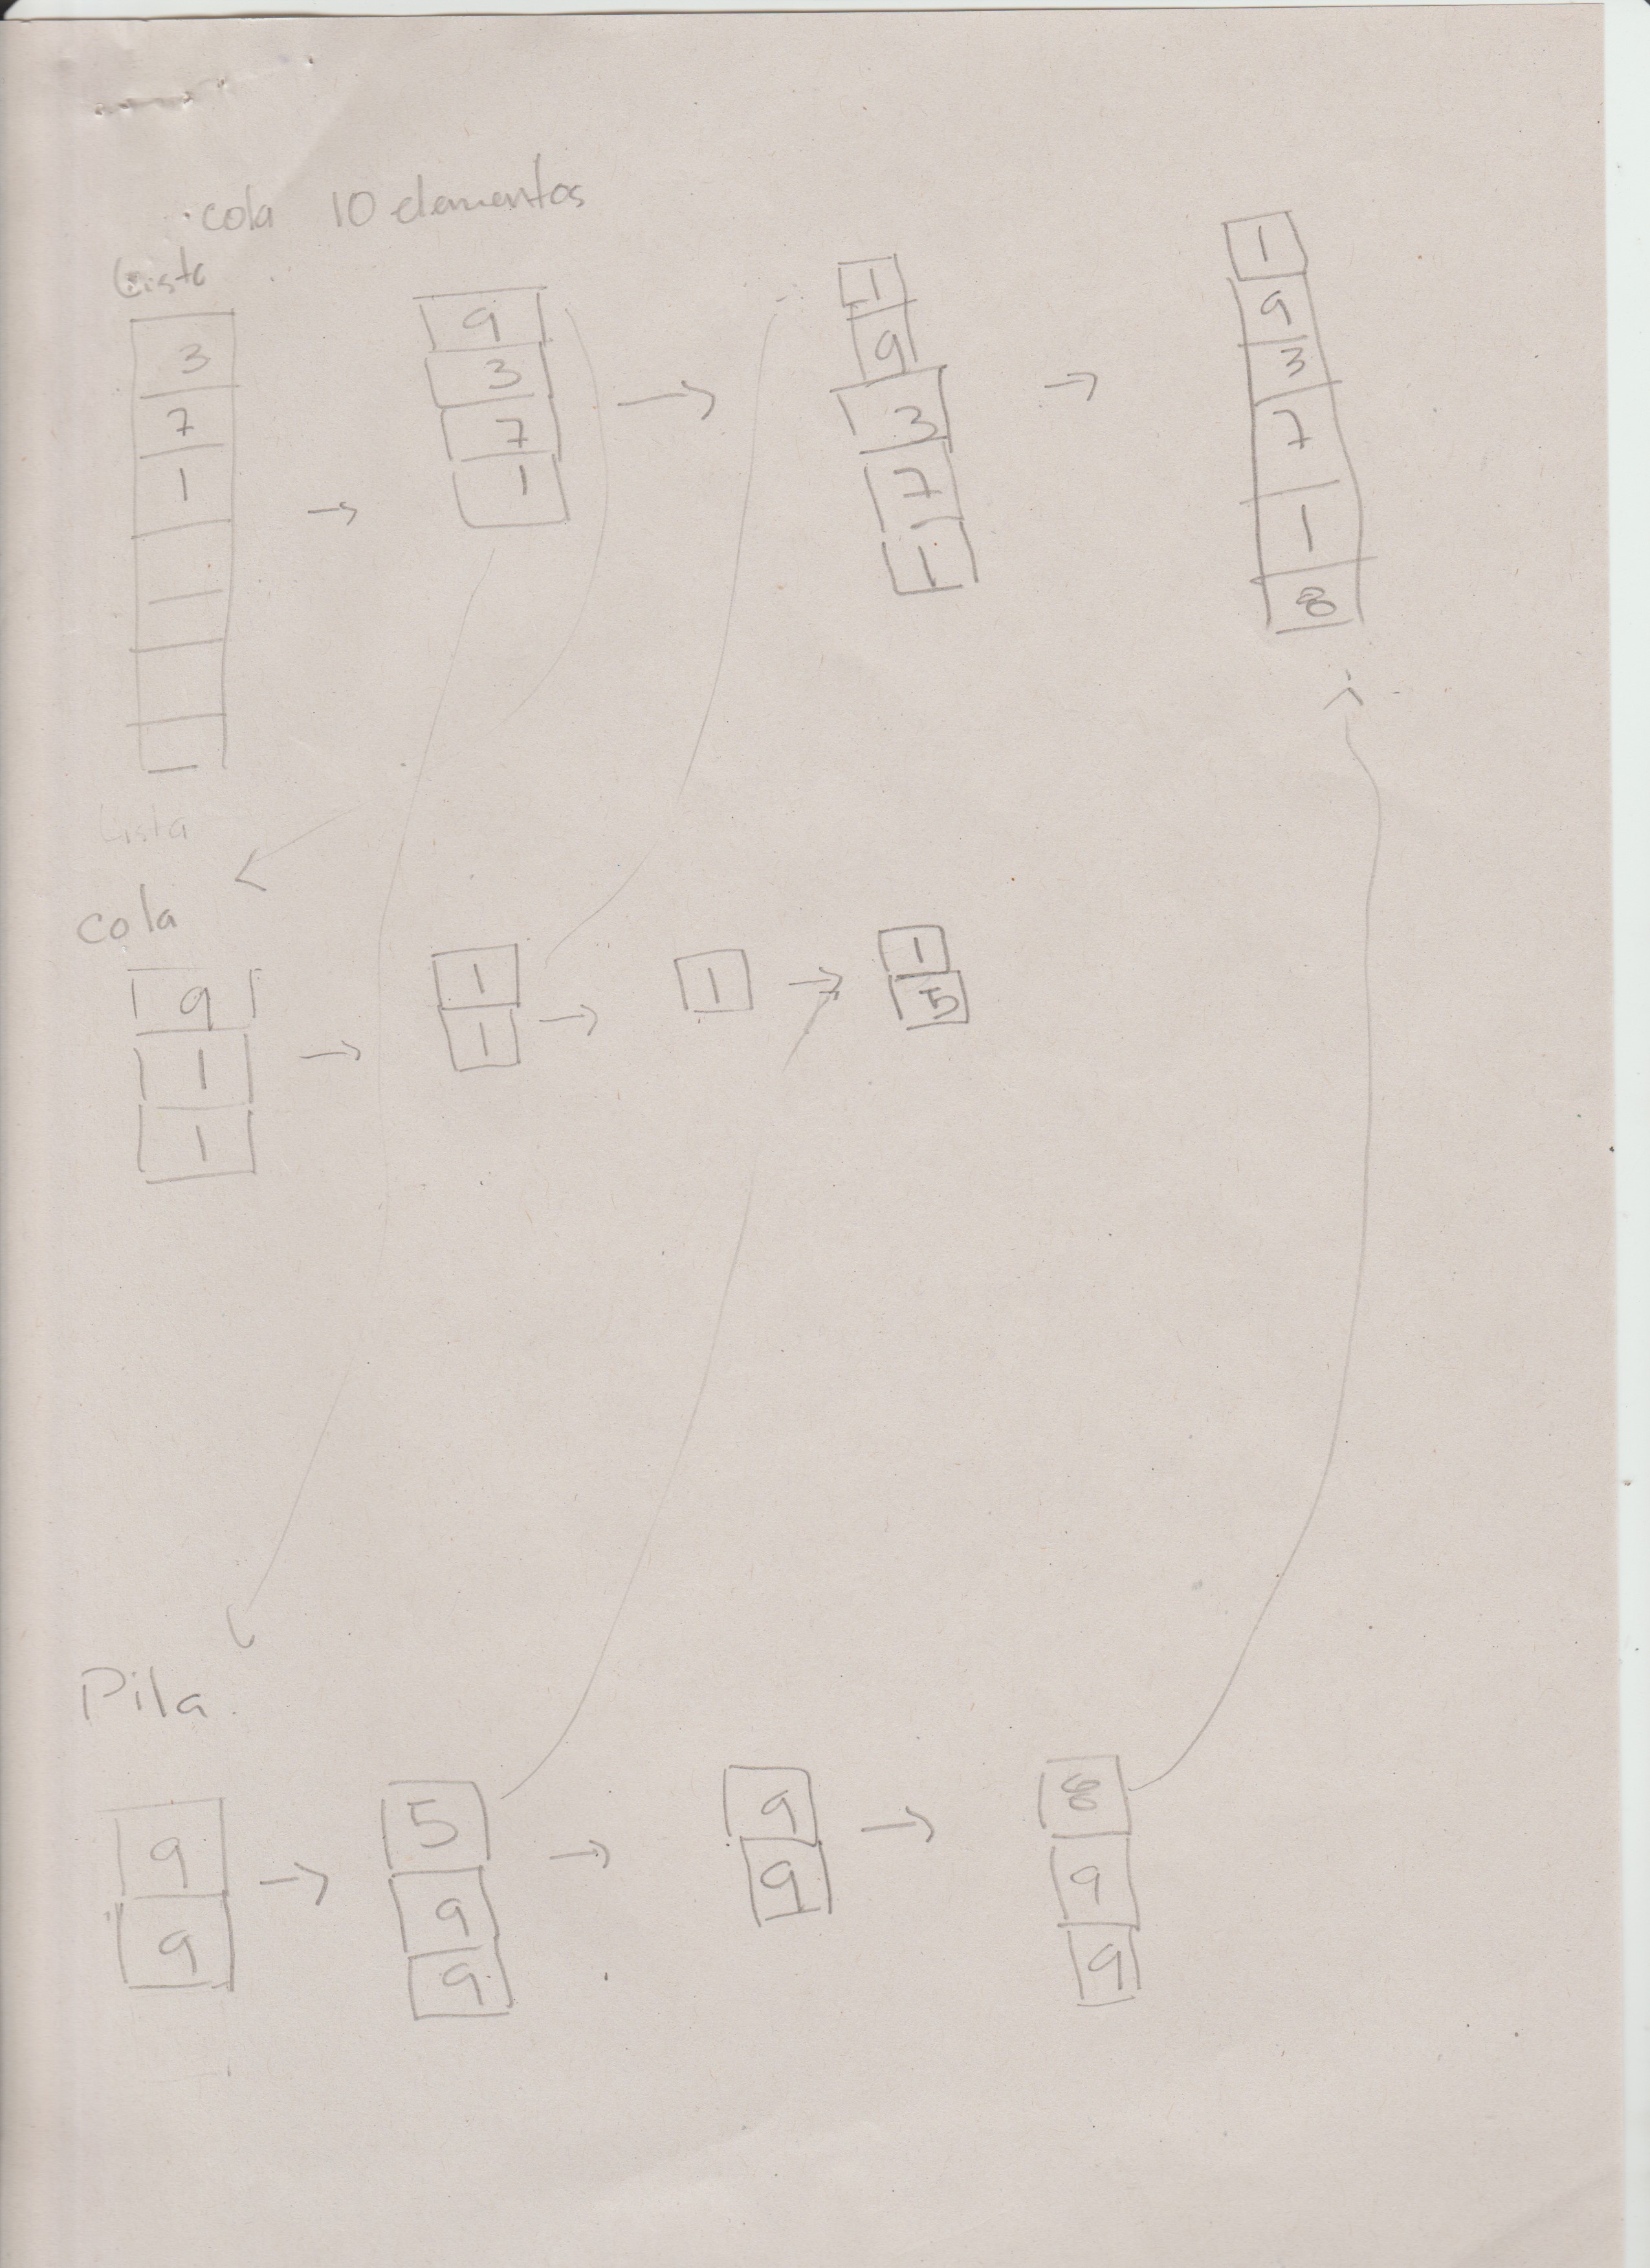 cola 10 elementos
Lista
3
7
1
9
3
7
1
1
9
3
7
1
1
9
3
7
1
8
Lista
cola
9
1
1
1
1
1
1
5
Pila
9
9
5
9
9
9
9
8
9
9